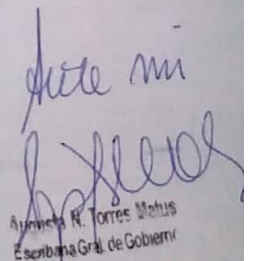 Ante mi
N. Torres Matus
Escribana Gral. de Gobierno